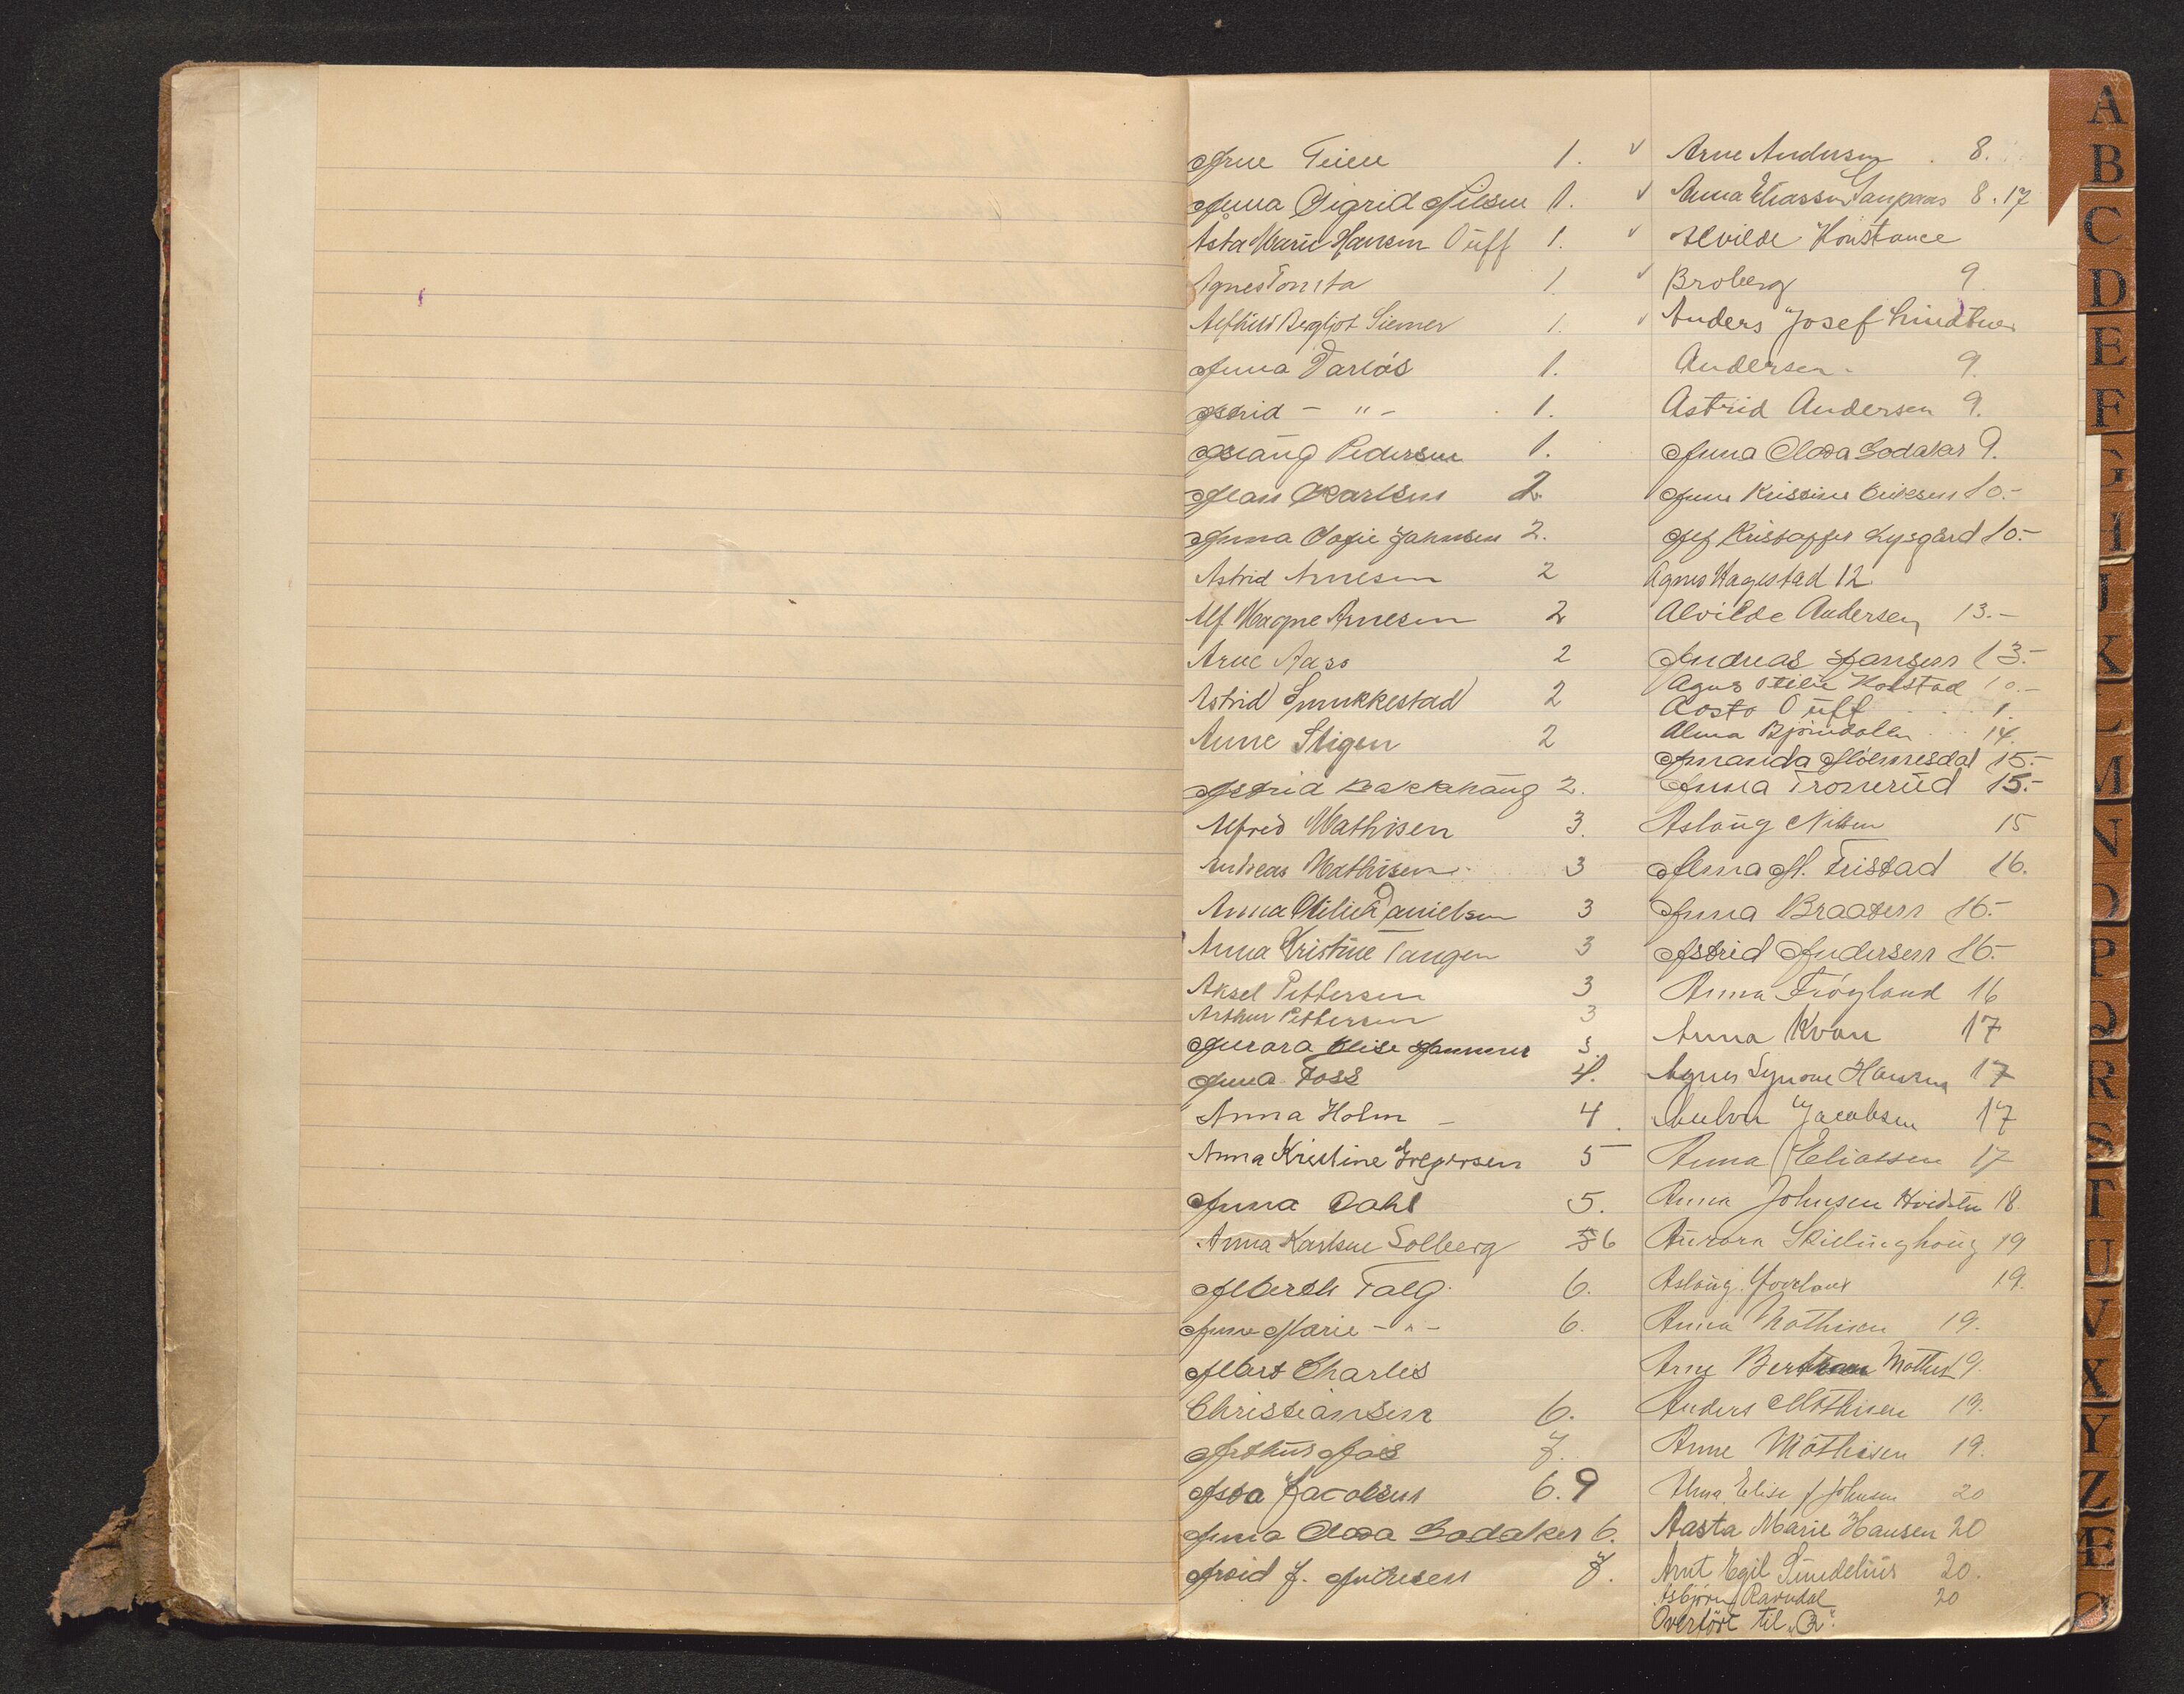 Arne Teien 1.
Anna Sigrid Nilsen 1.
Åsta Marie Hansen Oüff 1.
Agnes Tomta 1.
Bergljot Siemer 1.
Anna Darlös 1.
Astrid - " - 1.
Aslaug Pedersen 1.
Karlsen 2.
Anna Sofie Johnsen 2.
Astrid Arnesen 2
Alf Magne Arnesen 2
Arne Aass 2
Astrid Smukkestad 2
Anne Stigen 2
Astrid Bakkehaug 2.
Alfred Mathisen 3.
Andreas Mathisen 3
Anna Otilie Danielsen 3
Anna Kristine Tangen 3
Aksel Pettersen 3
Arthur Pettersen 3
Aurora Elise Hammer 3.
Anna Foss 4.
Anna Holm - 4.
Anna Kristine Gregersen 5
Anna Dahl 5.
Anna Karlsen Solberg 5 6
Alberth Talg. 6.
Anne Marie - " - 6.
Albert Charles
Christiansen 6.
Arthur Aas 7.
Asta Jacobsen 6. 9
Anna Olava Sodaker 6.
Arvid J. Andresen 7.
Arne Andersen 8.
Anna Eliassen 8. 17
Alvilde Konstance
Broberg 9
Anders Josef Lindtner
Andersen 9.
Astrid Andersen 9.
Anna Olava Sodaker 9.
Anne Kristine Eriksen 10.-
Alf Kristoffer Lysgård 10.-
Agnes Hagestad 12.
Alvilde Andersen 13.-
Andreas Hansen 13.-
Agnes Otilie Kolstad 10.-
Aasta Oüff 1.
Alma Björndalen 14.
Amanda 15.-
Anna Tronerud 15.-
Aslaug Nilsen 15
Anna M. Tristad 16.
Anna Braaten 16.-
Astrid Andersen 16.-
Anna Fröyland 16
Anna Kvan 17
Agnes Synove Hansen 17
Jacobsen 17
Anna Eliassen 17
Anna Johnsen Hvidsten 18
Aurora Skillinghaug 19
Aslaug 19.
Anna Mathisen 19.
Arne 19.
Anders Mathisen 19.
Anne Mathisen 19.
Alma Elise Johnsen 20
Aasta Marie Hansen 20
Arnt Egil Sundelius 20.
Asbjörn Ravndal 20
Overfört til "Q".
A
B
C
D
E
F
G
H
I
J
K
L
M
N
O
P
Q
R
S
T
U
V
X
Y
Z
Æ
Ø